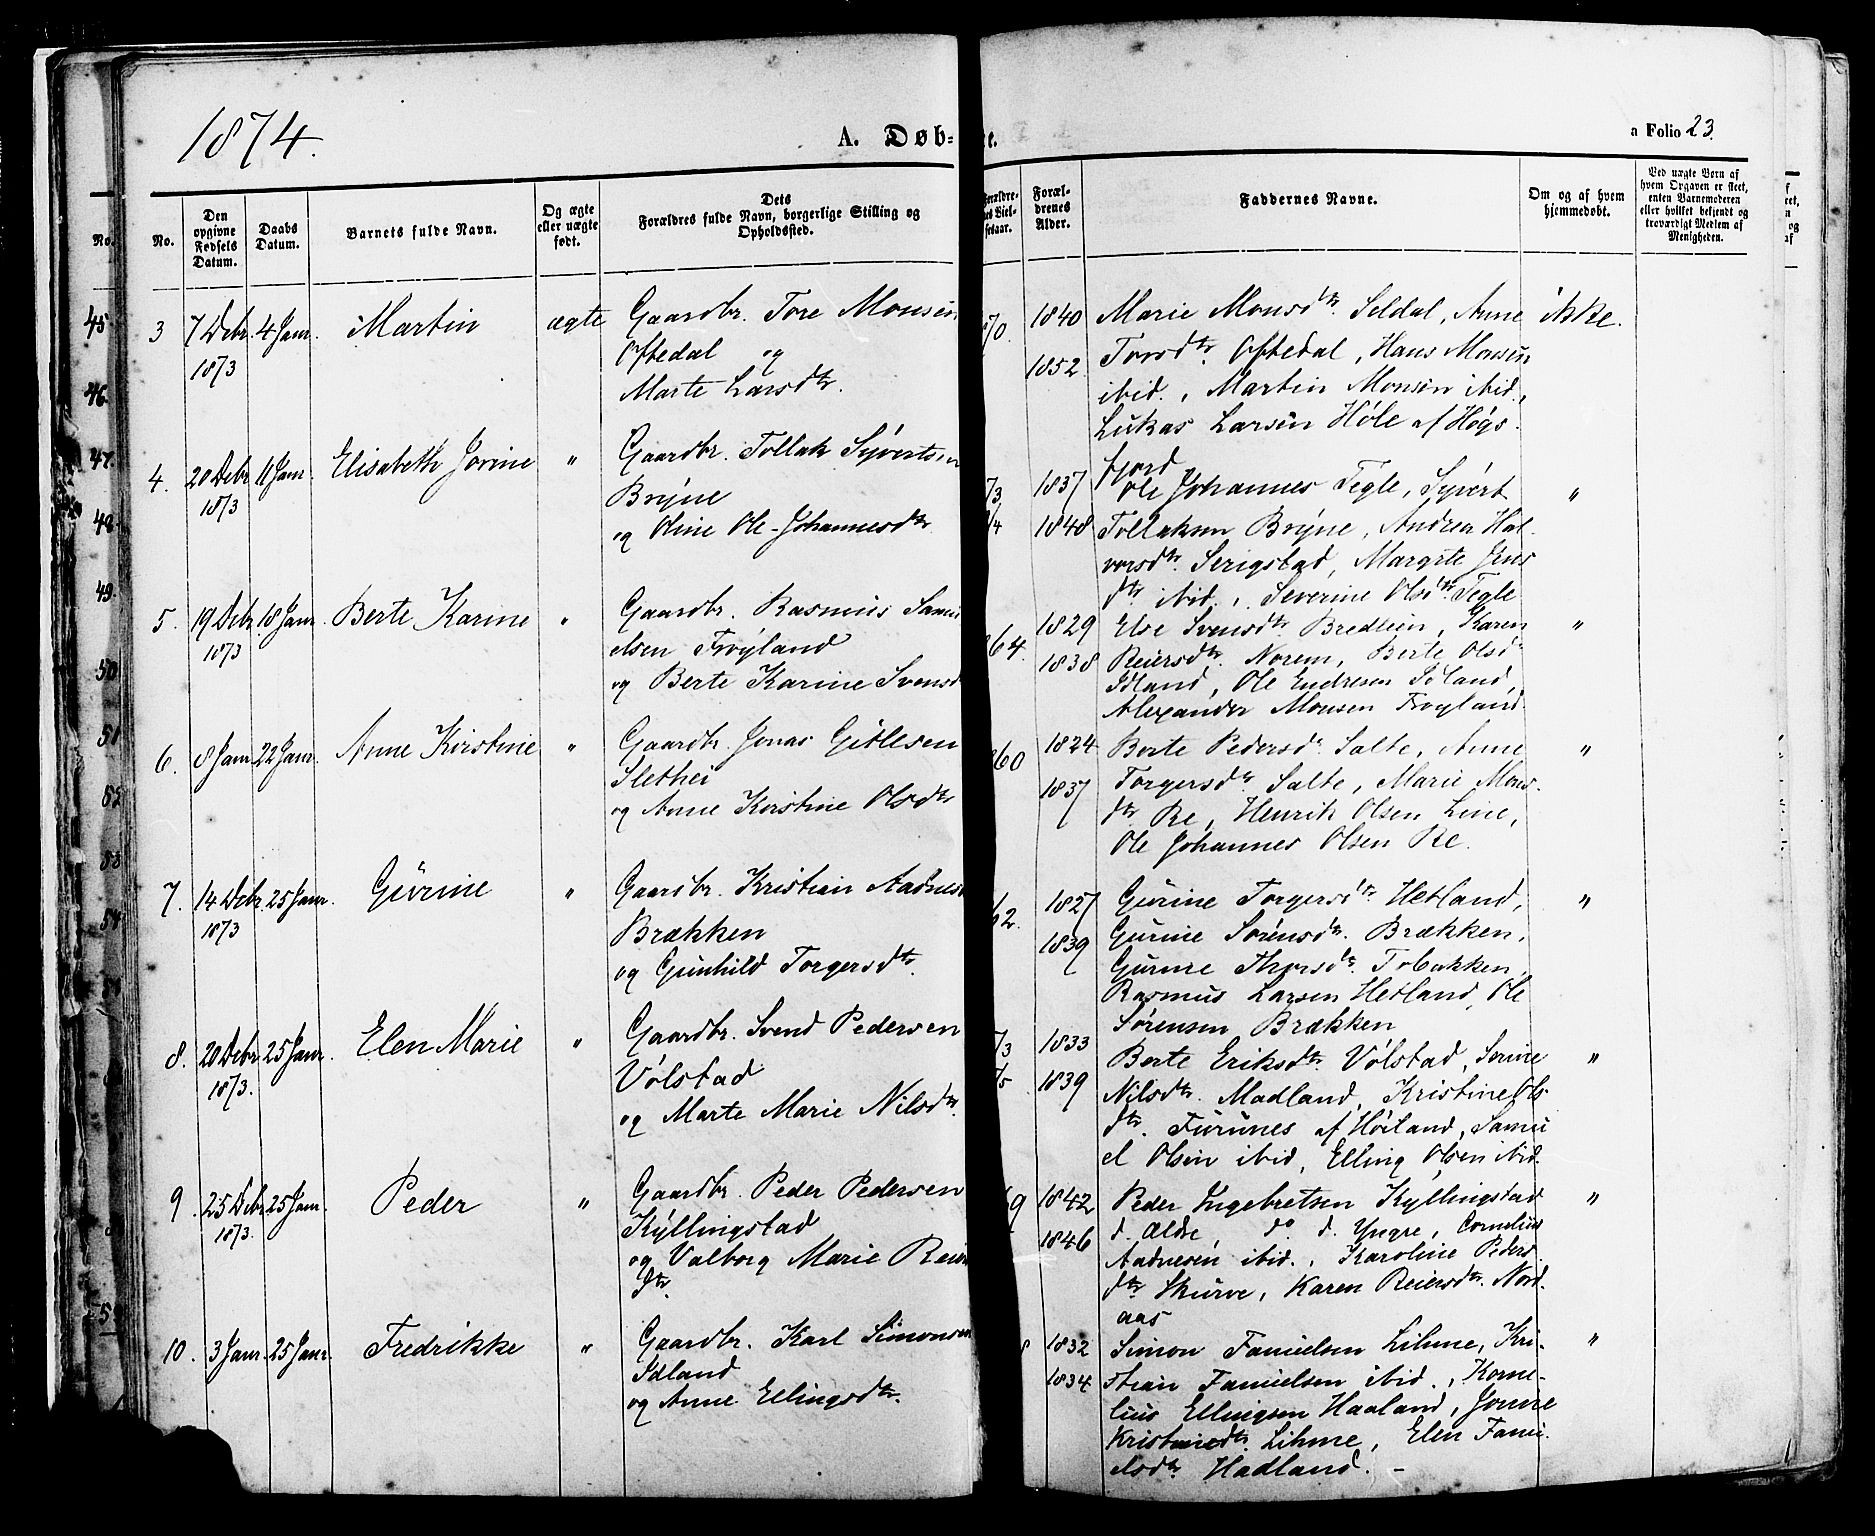 1874.
A. Døb-
te.
a Folio 23.
No.
No.
Den
opgivne
Fødsels
Datum.
Daabs
Datum.
Barnets fulde Navn.
Og ægte
eller uægte
født.
Dets
Forældres fulde Navn, borgerlige Stilling og
Opholdssted.
Foræl-
drenes
Alder.
Faddernes Navne.
Om og af hvem
hjemmedøbt.
Ved uægte Børn af
hvem Opgaven er skeet,
enten Barnemoderen
eller hvilket bekjendt og
troværdigt Medlem af
Menigheden.
3 7 Debr. 4 Janr. Martin ægte Gaardbr. Tore Monsen
1873 Oftedal og
Marte Larsdtr.
70. 1840 Marie Monsdtr. Seldal, Anne ikke.
1852 Torsdtr. Oftedal, Hans Monsen
ibid., Martin Monsen ibid.,
Lukas Larsen Høle af Høgs-
fjord
4. 20 Debr. 11 Janr. Elisabeth Jorine " Gaardbr. Tollak Syvertsen
1873 Bryne
og Oline Ole-Johannesdtr
73 1837 Ole Johannes Tegle, Syvert "
74 1848 Tollaksen Bryne, Andrea Hal-
vorsdtr. Serigstad, Margrte Jens
dtr. ibid., Severine Olsdtr. Tegle
5. 19 Debr. 18 Janr. Berte Karine " Gaardbr. Rasmus Samu
1873 elsen Frøyland
og Berte Karine Svensd
64. 1829 Else Svensdtr. Bredlein, Karen "
1838 Reiersdtr. Norem, Berte Olsd
Idland, Ole Endresen Idland,
Alexander Monsen Frøyland
6. 8 Janr. 22 Janr. Anne Kirstine " Gaardbr. Jonas Gitlesen
Slethei
og Anne Kirstine Olsdtr
60 1824 Berte Pedersd. Salte, Anne "
1837 Torgersdtr. Salte, Marie Mons-
dtr. Re, Henrik Olsen Line,
Ole Johannes Olsen Re.
7. 14 Debr. 25 Janr. Gurine " Gaardbr. Kristian Aadnes
1873 Brækken
og Gunhild Torgersdtr.
62. 1827 Gurine Torgersdtr. Hetland, "
1839 Gurine Sørensdtr. Brækken,
Gurine Thorsdtr. Tobakken,
Rasmus Larsen Hetland, Ole
Sørensen Brækken
8. 20 Debr. 25 Janr. Elen Marie " Gaardbr. Svend Pedersen
1873. Vølstad
og Marte Marie Nilsdtr.
73 1833 Berte Eriksdtr. Vølstad, Serine "
75 1839 Nilsdtr. Madland, Kristine Ols-
dtr. Furunes af Høiland, Samu
el Olsen ibid, Elling Olsen ibid.
9 25 Debr. 25 Janr. Peder " Gaardbr. Peder Pedersen
1873. Kyllingstad
og Valborg Marie Reiers
dtr.
69 1842 Peder Ingebretsen Kyllingstad "
1846 d. Ældre, do d. Yngre, Cornelius
Aadnesen ibid., Karoline Peders
dtr. Skurve, Karen Reiersdtr. Nord-
aas
10. 3 Janr. 25 Janr. Fredrikke " Gaardbr. Karl Simonsen
Idland
og Anne Ellingsdtr.
8 1832 Simon Tanielsen Lihme, Kri- "
1834 stian Tanielsen ibid., Korne-
lius Ellingsen Haaland, Jonine
Kristinedtr. Lihme, Elen Tani-
elsdtr. Hadland. -